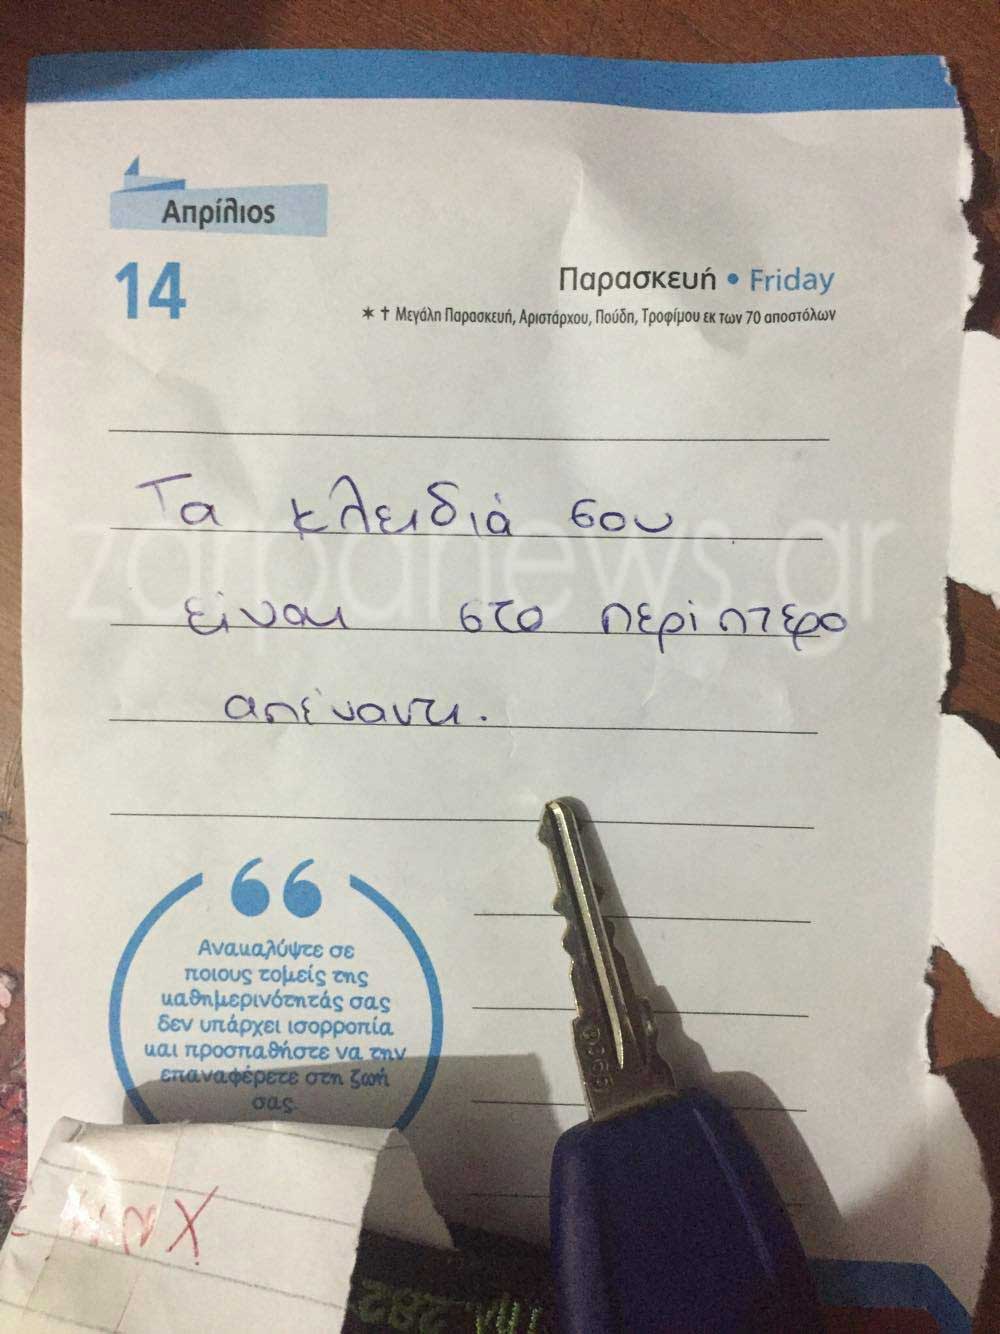 Απρίλιος
14
Παρασκευή • Friday
✶ † Μεγάλη Παρασκευή, Αριστάρχου, Πούδη, Τροφίμου εκ των 70 αποστόλων
Τα κλειδιά σου
είναι στο περίπτερο
απέναντι.
zarpanews.gr
“
Ανακαλύψτε σε
ποιους τομείς της
καθημερινότητάς σας
δεν υπάρχει ισορροπία
και προσπαθήστε να την
επαναφέρετε στη ζωή
σας.